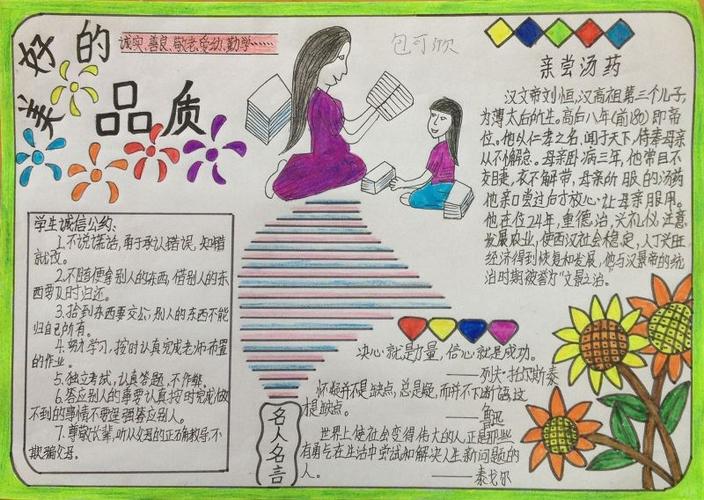 美好的
品质
诚实、善良、敬老、爱幼、勤学……
包可欣
亲尝汤药
汉文帝刘恒，汉高祖第三个儿子，
为薄太后所生。高后八年（前180）即帝
位。他以仁孝之名，闻于天下，侍奉母亲
从不懈怠。母亲卧病三年，他常目不
交睫，衣不解带，母亲所服的汤药
他亲口尝过后才放心让母亲服用。
他在位24年，重德治，兴礼仪，注意
发展农业，使西汉社会稳定，人丁兴旺，
经济得到恢复和发展，他与汉景帝的统
治时期被誉为"文景之治"。
学生诚信公约：
1.不说谎话，勇于承认错误，知错
就改。
2.不随便拿别人的东西，借别人的东
西要及时归还。
3.拾到东西要交公，别人的东西不能
归自己所有。
4.努力学习，按时认真完成老师布置
的作业。
5.独立考试，认真答题，不作弊。
6.答应别人的事要认真按时完成，做
不到的事情不要逞强答应别人。
7.尊敬长辈，听从父母的正确教导，不
欺骗父母。
名人名言
决心就是力量，信心就是成功。
——列夫·托尔斯泰
怀疑并不是缺点，总是疑，而并不下断语，这
才是缺点。
——鲁迅
世界上使社会变得伟大的人，正是那些
有勇气在生活中尝试和解决人生新问题的
人。
——泰戈尔